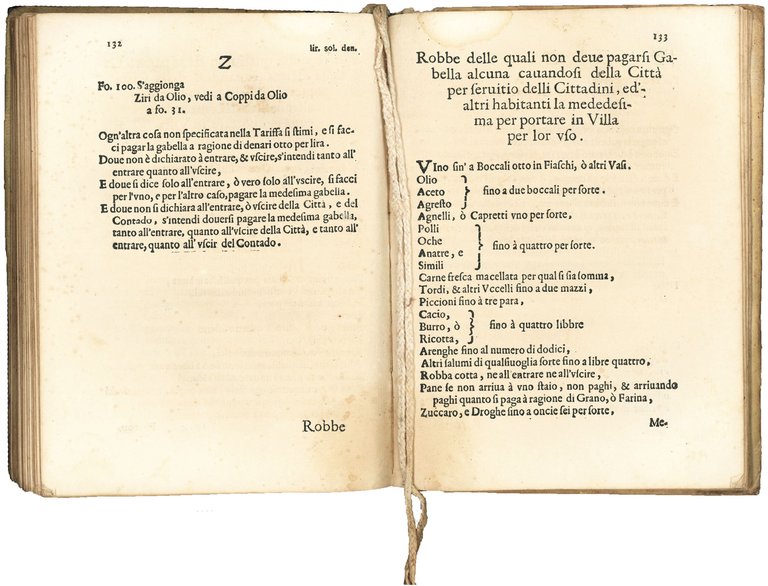 132
lir. sol. den.
Z
Fo. 100. S'aggionga
Ziri da Olio, vedi a Coppi da Olio
a fo. 31.
Ogn'altra cosa non ſpecificata nella Tariffa ſi ſtimi, e ſi fac-
ci pagar la gabella a ragione di denari otto per lira.
Doue non è dichiarato à entrare, & vſcire, s'intendi tanto all'
entrare quanto all'vſcire,
E doue ſi dice ſolo all'entrare, ò vero ſolo all'vſcire, ſi facci
per l'vno, e per l'altro caſo, pagare la medeſima gabella.
E doue non ſi dichiara all'entrare, ò vſcire della Città, e del
Contado, s'intendi douerſi pagare la medeſima gabella,
tanto all'entrare, quanto all'vſcire della Città, e tanto all'
entrare, quanto all'vſcir del Contado.
Robbe
133
Robbe delle quali non deue pagarſi Ga-
bella alcuna cauandoſi della Città
per ſeruitio delli Cittadini, ed'-
altri habitanti la mededeſi-
ma per portare in Villa
per lor vſo.
VIno ſin' a Boccali otto in Fiaſchi, ò altri Vaſi.
Olio
Aceto } ſino a due boccali per ſorte.
Agreſto
Agnelli, ò Capretti vno per ſorte,
Polli
Oche
Anatre, e } ſino à quattro per ſorte.
Simili
Carne freſca macellata per qual ſi ſia ſomma,
Tordi, & altri Vccelli ſino a due mazzi,
Piccioni ſino à tre para,
Cacio,
Burro, ò } ſino à quattro libbre
Ricotta,
Arenghe ſino al numero di dodici,
Altri ſalumi di qualſiuoglia ſorte ſino a libre quattro,
Robba cotta, ne all'entrare ne all'vſcire,
Pane ſe non arriua à vno ſtaio, non paghi, & arriuando
paghi quanto ſi paga à ragione di Grano, ò Farina,
Zuccaro, e Droghe ſino a oncie ſei per ſorte,
Me-